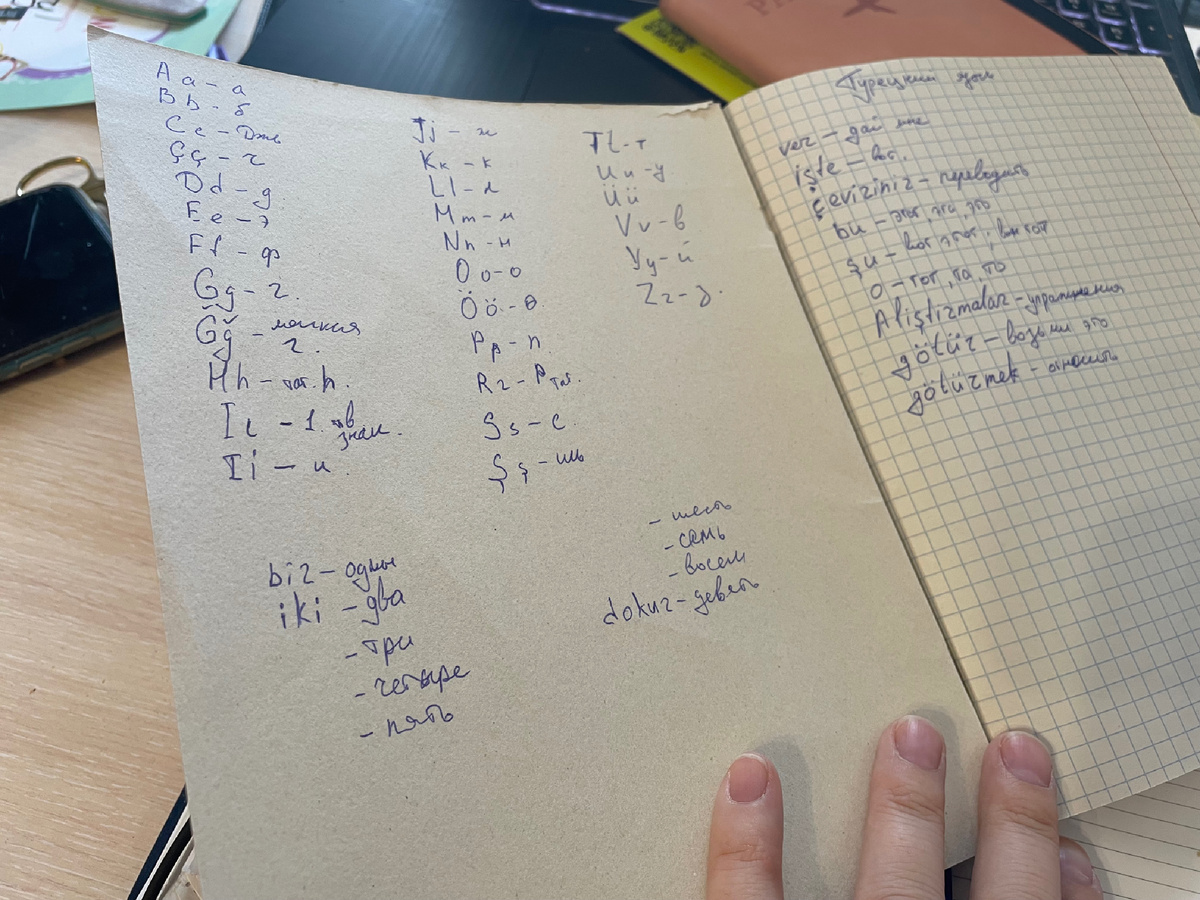 Aa - а
Bb - б
Cc - Дж
Çç - ч
Dd - д
Ee - э
Ff - ф
Gg - г.
Ğğ - мягкая г.
Hh - тат. h.
Iı - I тв знак.
İi - и.
Jj - ж
Kk - к
Ll - л
Mm - м
Nn - н
Oo - о
Öö - ө
Pp - п.
Rr - Р тат.
Ss - с.
Şş - шь
Tt - т
Uu - у.
Üü
Vv - в
Yy - й
Zz - з.
bir - один
iki - два
- три
- четыре
- пять
- шесть
- семь
- восем
dokuz - девять
Турецкий язык
ver - дай мне
işte - вот.
Çeviriniz - переводить
bu - этот, эта, это
şu - вот этот, вон тот
o - тот, та, то
Aliştirmalar - упражнения
götür - возьми это
götürmek - относить